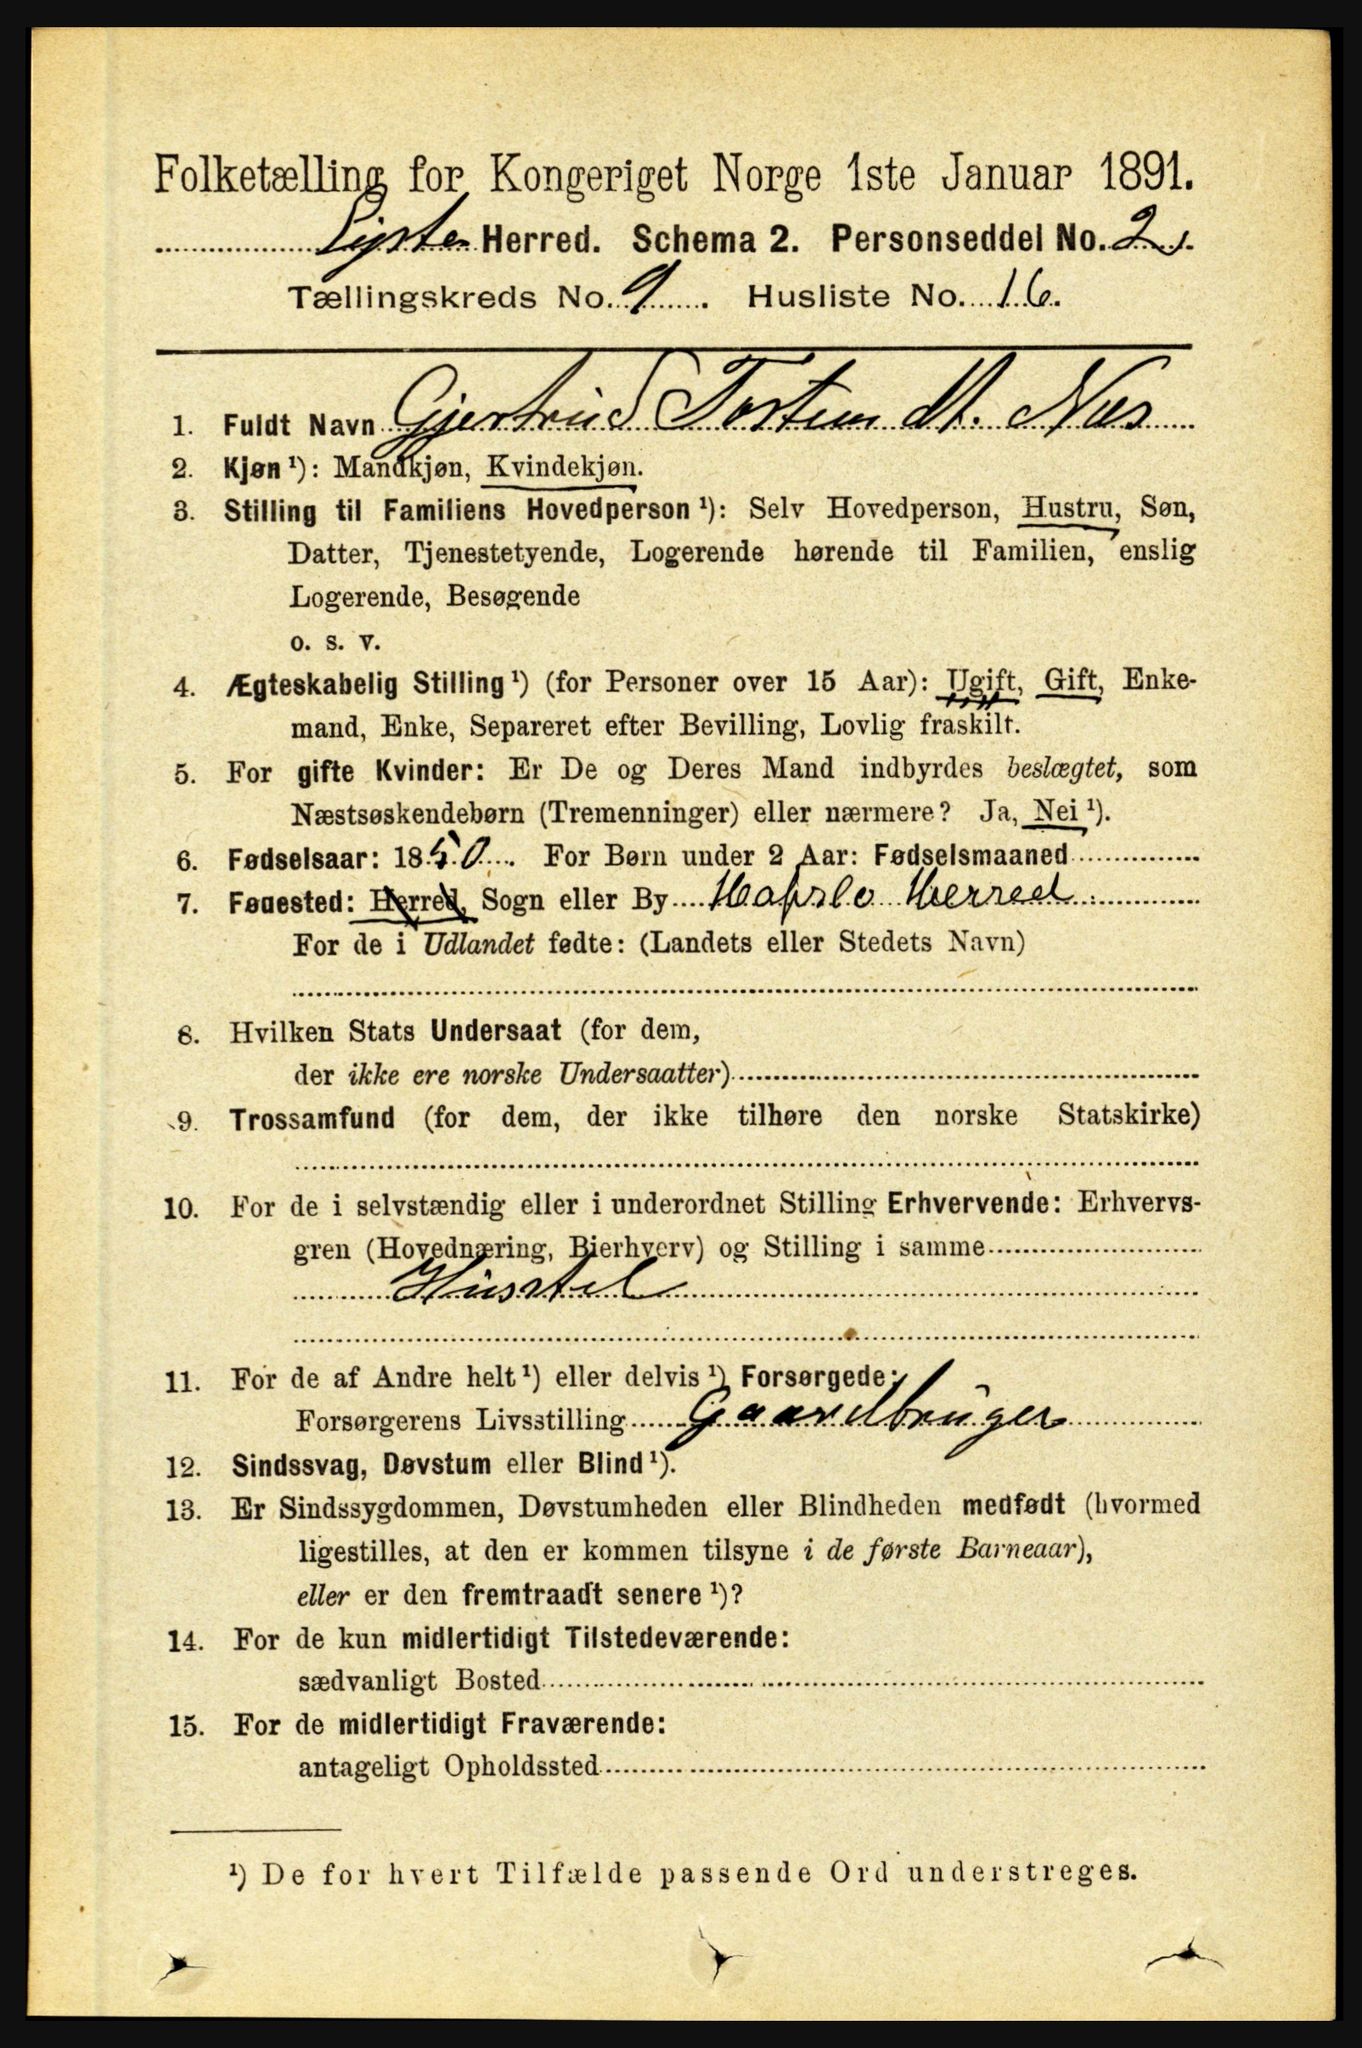 Folketælling for Kongeriget Norge 1ste Januar 1891.
Lyster Herred. Schema 2. Personseddel No. 2.
Tællingskreds No. 9. Husliste No. 16.
1. Fuldt Navn Gjertrud Torstein dt. Næs
2. Kjøn ¹): Mandkjøn, Kvindekjøn.
3. Stilling til Familiens Hovedperson ¹): Selv Hovedperson, Hustru, Søn,
Datter, Tjenestetyende, Logerende hørende til Familien, enslig
Logerende, Besøgende
o. s. v.
4. Ægteskabelig Stilling ¹) (for Personer over 15 Aar): Ugift, Gift, Enke-
mand, Enke, Separeret efter Bevilling, Lovlig fraskilt.
5. For gifte Kvinder: Er De og Deres Mand indbyrdes beslægtet, som
Næstsøskendebørn (Tremenninger) eller nærmere? Ja, Nei ¹).
6. Fødselsaar: 1850. For Børn under 2 Aar: Fødselsmaaned
7. Fødested: Herred, Sogn eller By Hafslo Herred
For de i Udlandet fødte: (Landets eller Stedets Navn)
8. Hvilken Stats Undersaat (for dem,
der ikke ere norske Undersaatter)
9. Trossamfund (for dem, der ikke tilhøre den norske Statskirke)
10. For de i selvstændig eller i underordnet Stilling Erhvervende: Erhvervs-
gren (Hovednæring, Bierhverv) og Stilling i samme
Husstel
11. For de af Andre helt ¹) eller delvis ¹) Forsørgede:
Forsørgerens Livsstilling Gaardbruger
12. Sindssvag, Døvstum eller Blind ¹).
13. Er Sindssygdommen, Døvstumheden eller Blindheden medfødt (hvormed
ligestilles, at den er kommen tilsyne i de første Barneaar),
eller er den fremtraadt senere ¹)?
14. For de kun midlertidigt Tilstedeværende:
sædvanligt Bosted
15. For de midlertidigt Fraværende:
antageligt Opholdssted
¹) De for hvert Tilfælde passende Ord understreges.